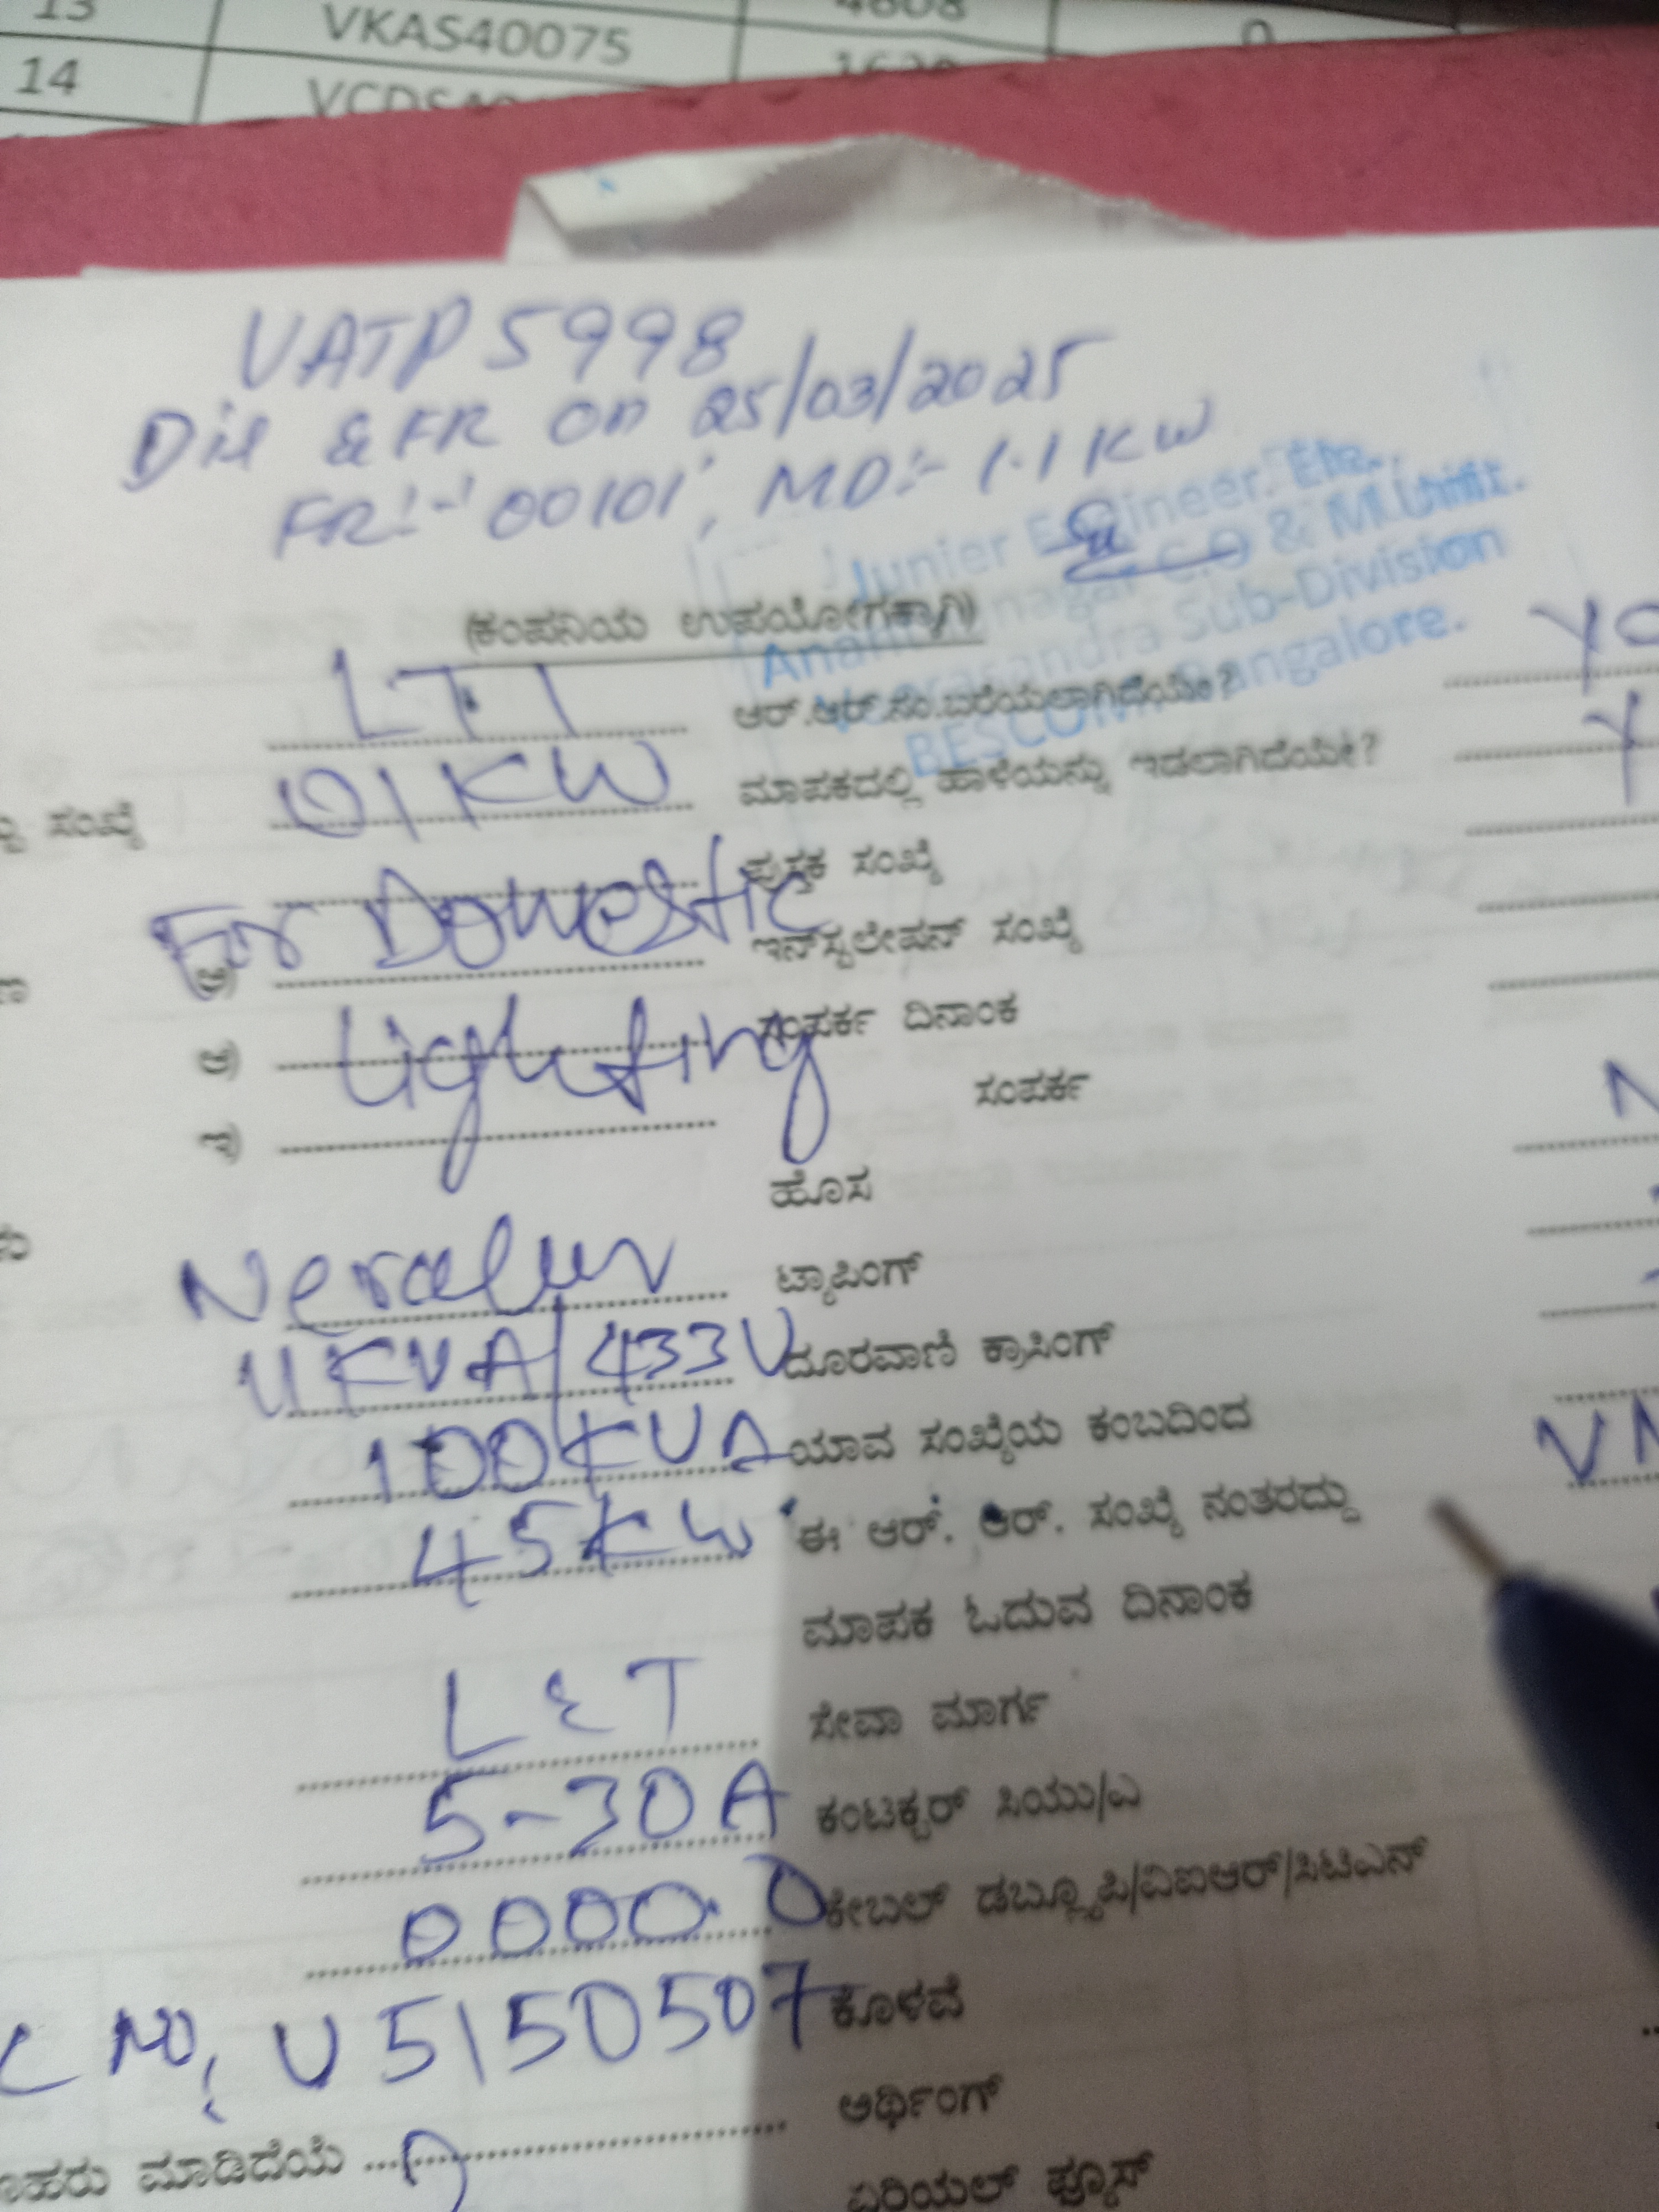 13 VKAS40075 4608 0
14
VATP 5998
Dil & FR on 25/03/2025
FR:- '00101', MD:- 1.1 KW
Junier Engineer. Ele.,
C.O & M.Unit.
Sub-Division
BESCOM, Bangalore.
(ಕಂಪನಿಯ ಉಪಯೋಗಕ್ಕಾಗಿ)
LT 1 ಆರ್.ಆರ್.ಸಂ.ಬರೆಯಲಾಗಿದೆಯೇ?
ಸಂಖ್ಯೆ 01 KW ಮಾಪಕದಲ್ಲಿ ಹಾಳೆಯನ್ನು ಇಡಲಾಗಿದೆಯೇ?
ಪುಸ್ತಕ ಸಂಖ್ಯೆ
For Domestic ಇನ್‌ಸ್ಟಲೇಷನ್ ಸಂಖ್ಯೆ
ಆ) Lighting ಸಂಪರ್ಕ ದಿನಾಂಕ
ಇ) ಸಂಪರ್ಕ
ಹೊಸ
Neralur ಟ್ಯಾಪಿಂಗ್
11 KVA/433V ದೂರವಾಣಿ ಕ್ರಾಸಿಂಗ್
100 KVA ಯಾವ ಸಂಖ್ಯೆಯ ಕಂಬದಿಂದ
45 KW ಈ ಆರ್. ಆರ್. ಸಂಖ್ಯೆ ನಂತರದ್ದು
ಮಾಪಕ ಓದುವ ದಿನಾಂಕ
L&T ಸೇವಾ ಮಾರ್ಗ
5-30A ಕಂಟಕ್ಟರ್ ಸಿಯು/ಎ
0000.0 ಕೇಬಲ್ ಡಬ್ಲ್ಯೂಪಿ/ವಿಐಆರ್/ಸಿಟಿಎನ್
NO, U5150507 ಕೊಳವೆ
ಅರ್ಥಿಂಗ್
ಮಾಡಿದೆಯೆ ಏರಿಯಲ್ ಫ್ಯೂಸ್